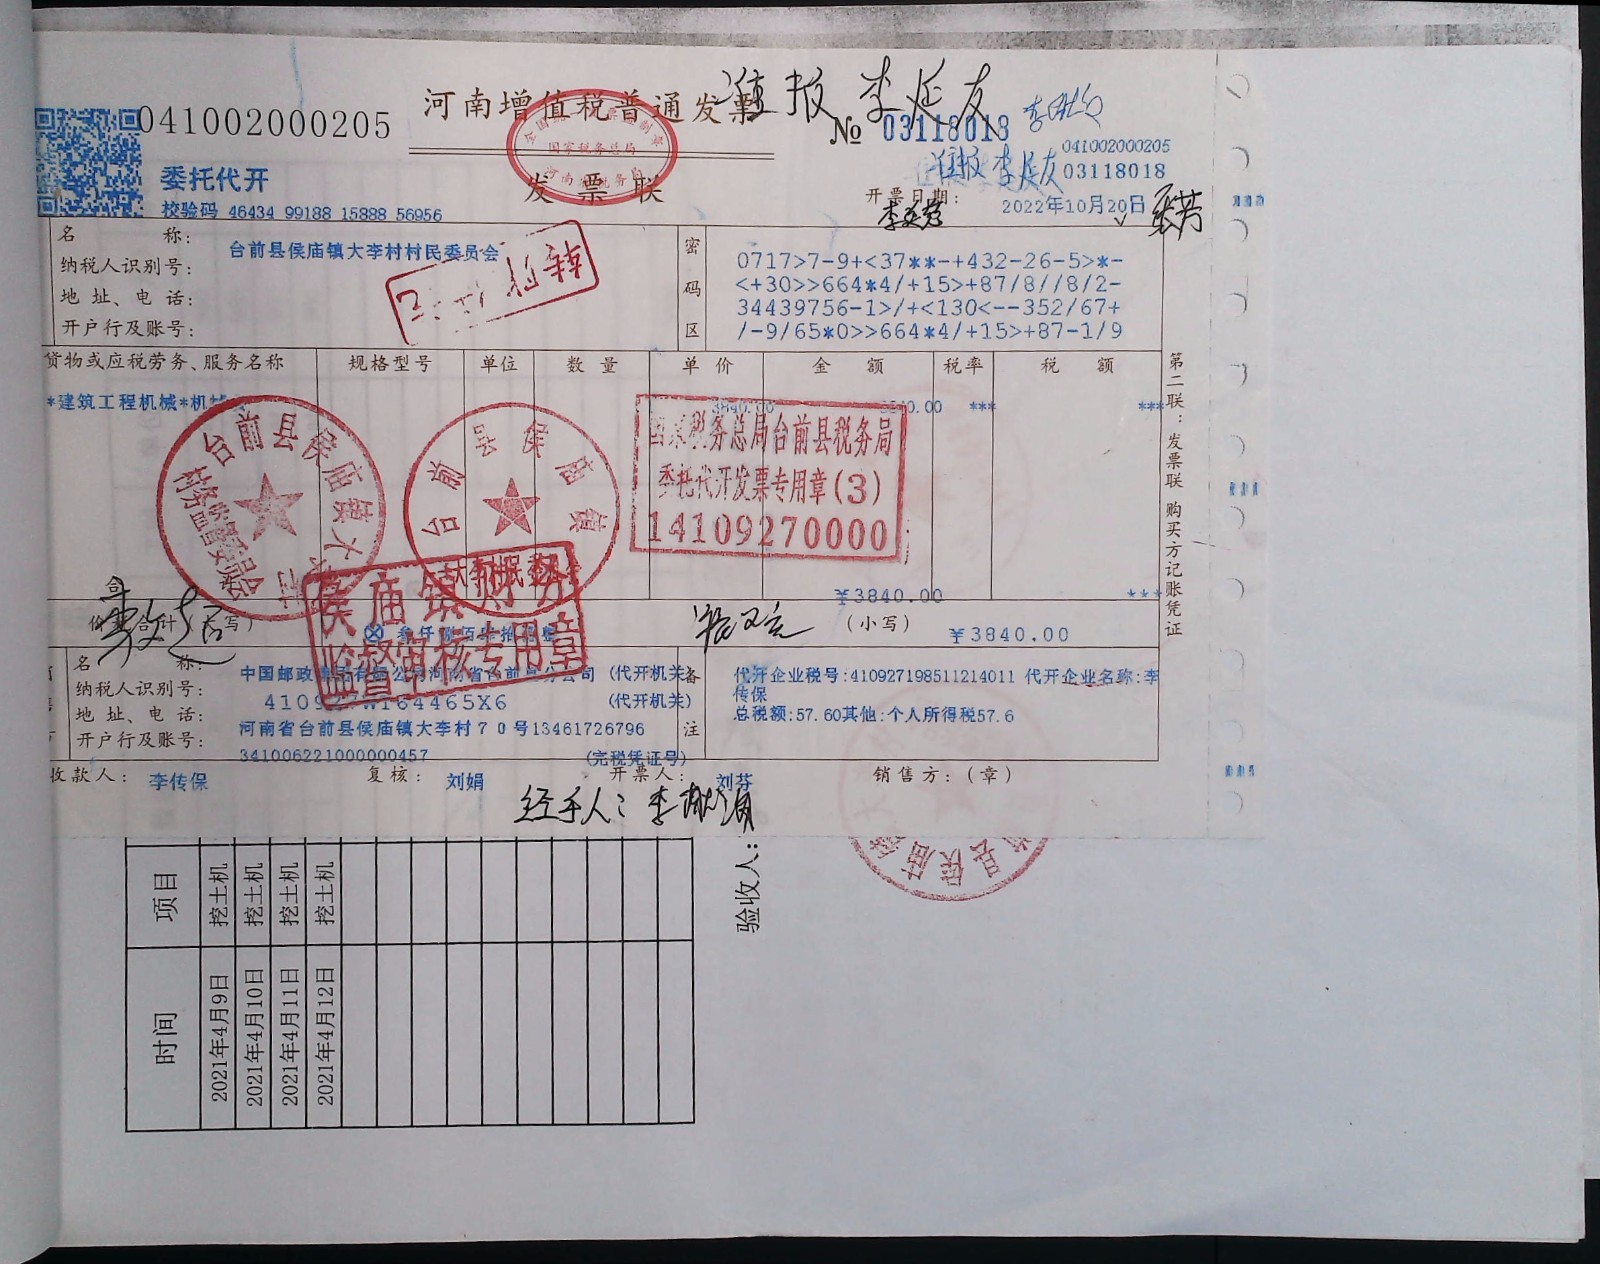 041002000205
河南增值税普通发票
准报 李延友
№ 03118018
041002000205
03118018
委托代开
校验码 46434 99188 15888 56956
发票联
国家税务总局
开票日期:
2022年10月20日
名 称: 台前县侯庙镇大李村村民委员会
纳税人识别号:
地 址、电 话:
开户行及账号:
密码区
0717>7-9+<37**-+432-26-5>*-
<+30>>664*4/+15>+87/8//8/2-
34439756-1>/+<130<--352/67+
/-9/65*0>>664*4/+15>+87-1/9
货物或应税劳务、服务名称 规格型号 单位 数 量 单 价 金 额 税率 税 额
*建筑工程机械*机械 3840.00 3840.00 *** ***
台前县侯庙镇大
村务监督委员会
台前县侯庙镇
国家税务总局台前县税务局
委托代开发票专用章(3)
14109270000
¥3840.00 ***
(小写) ¥3840.00
侯庙镇财务
监督审核专用章
名 称: 中国邮政 河南省台前县分公司 (代开机关)
纳税人识别号: (代开机关)
地 址、电 话: 河南省台前县侯庙镇大李村70号13461726796
开户行及账号: 341006221000000457 (完税凭证号)
备注
代开企业税号:410927198511214011 代开企业名称:李
传保
总税额:57.60其他:个人所得税57.6
收款人: 李传保 复核: 刘娟 开票人: 刘芬 销售方:(章)
第二联:发票联 购买方记账凭证
经手人:
项目 挖土机 挖土机 挖土机 挖土机
时间 2021年4月9日 2021年4月10日 2021年4月11日 2021年4月12日
验收人: